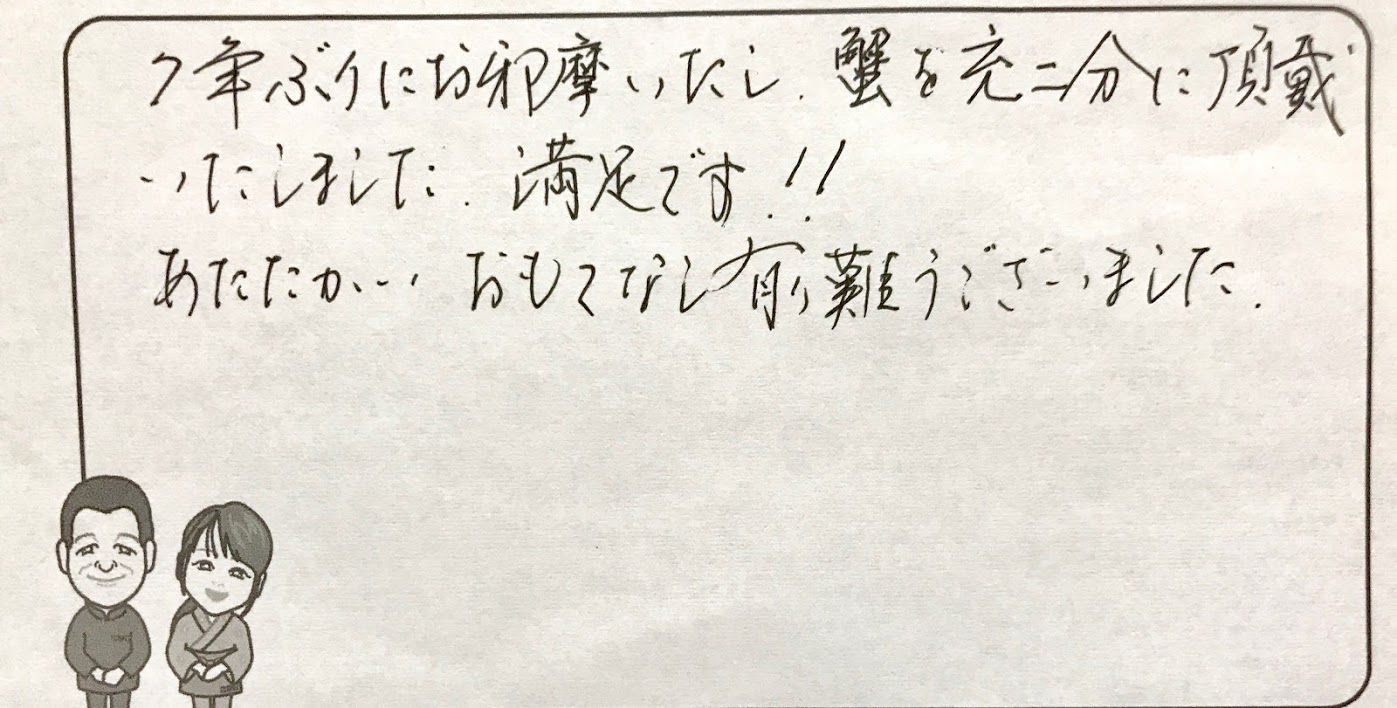 7年ぶりにお邪摩いたし、蟹を充二分に頂戴
いたしました。満足です!!
あたたかいおもてなし有り難うございました。